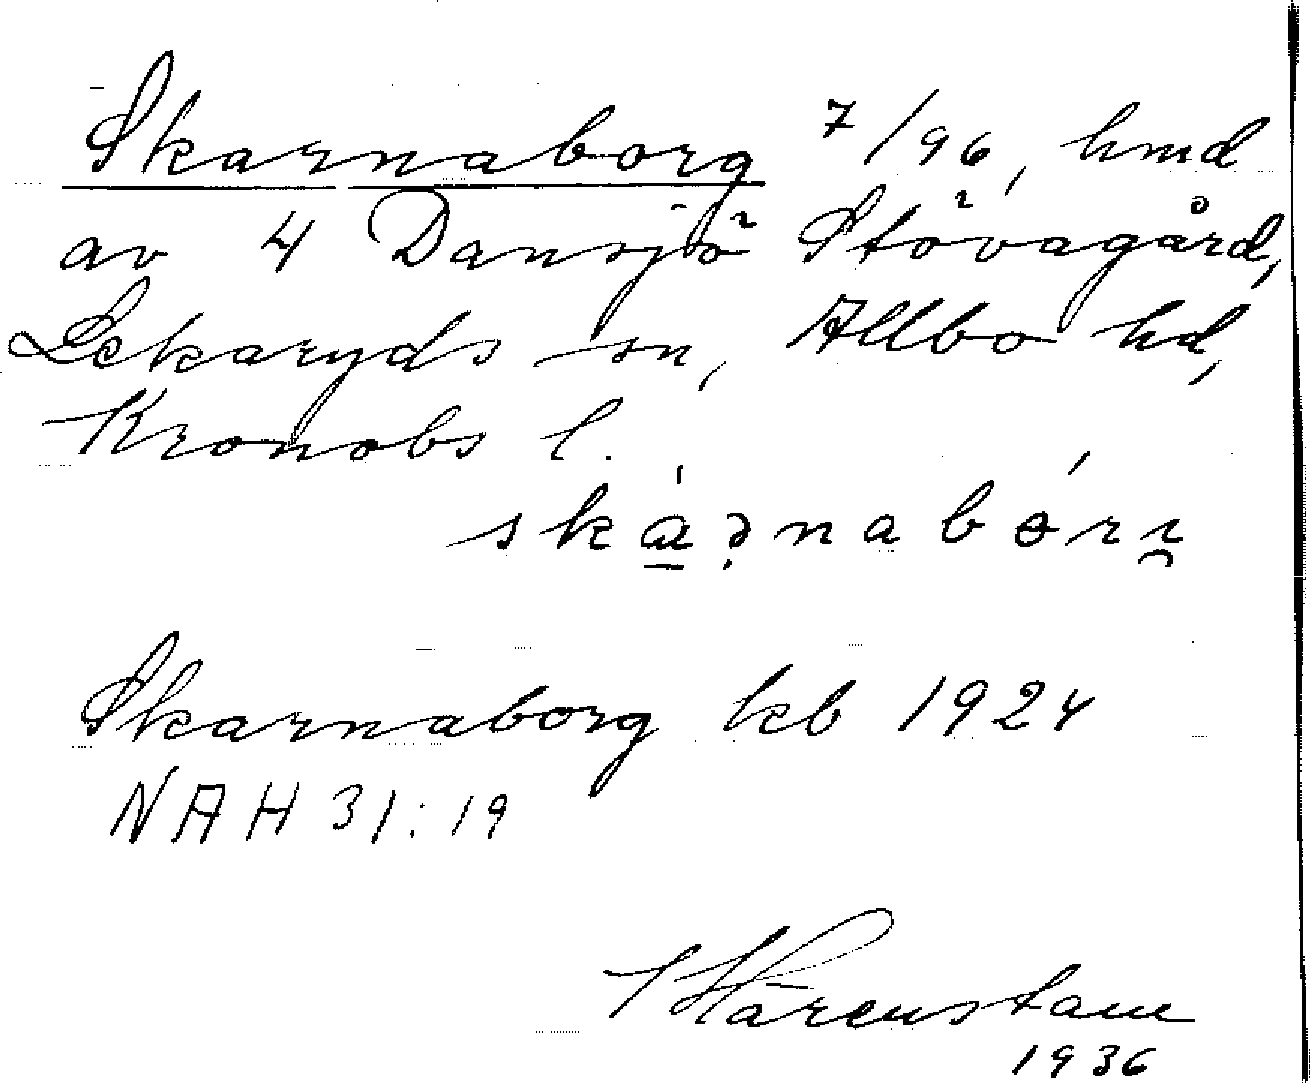 Skarnaborg 7/96, hmd
av 4 Dansjö Stövagård,
Lekaryds sn, Allbo hd,
Kronobs l.
Skarnaborg kb 1924
NAH 31:19
1936